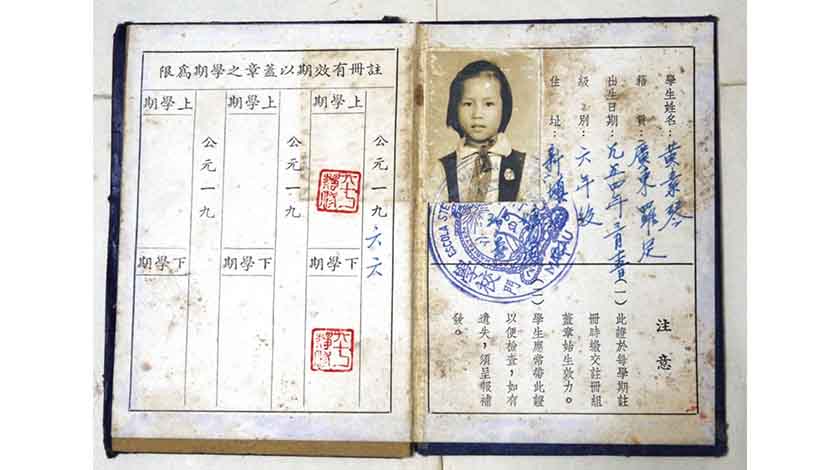 學生姓名：黃素琴
籍貫：廣東羅定
出生日期：九五四年
級別：六年級
住址：新填
ESCOLA STE
MACAU
學校
門
注意
(一)此證於每學期註
冊時繳交註冊組
蓋章始生效力。
(二)學生應常帶此證
以便檢查，如有
遺失，須呈報補
發。
註冊有效期以蓋章之學期爲限
公元一九六六
上學期
下學期
公元一九
上學期
下學期
公元一九
上學期
下學期